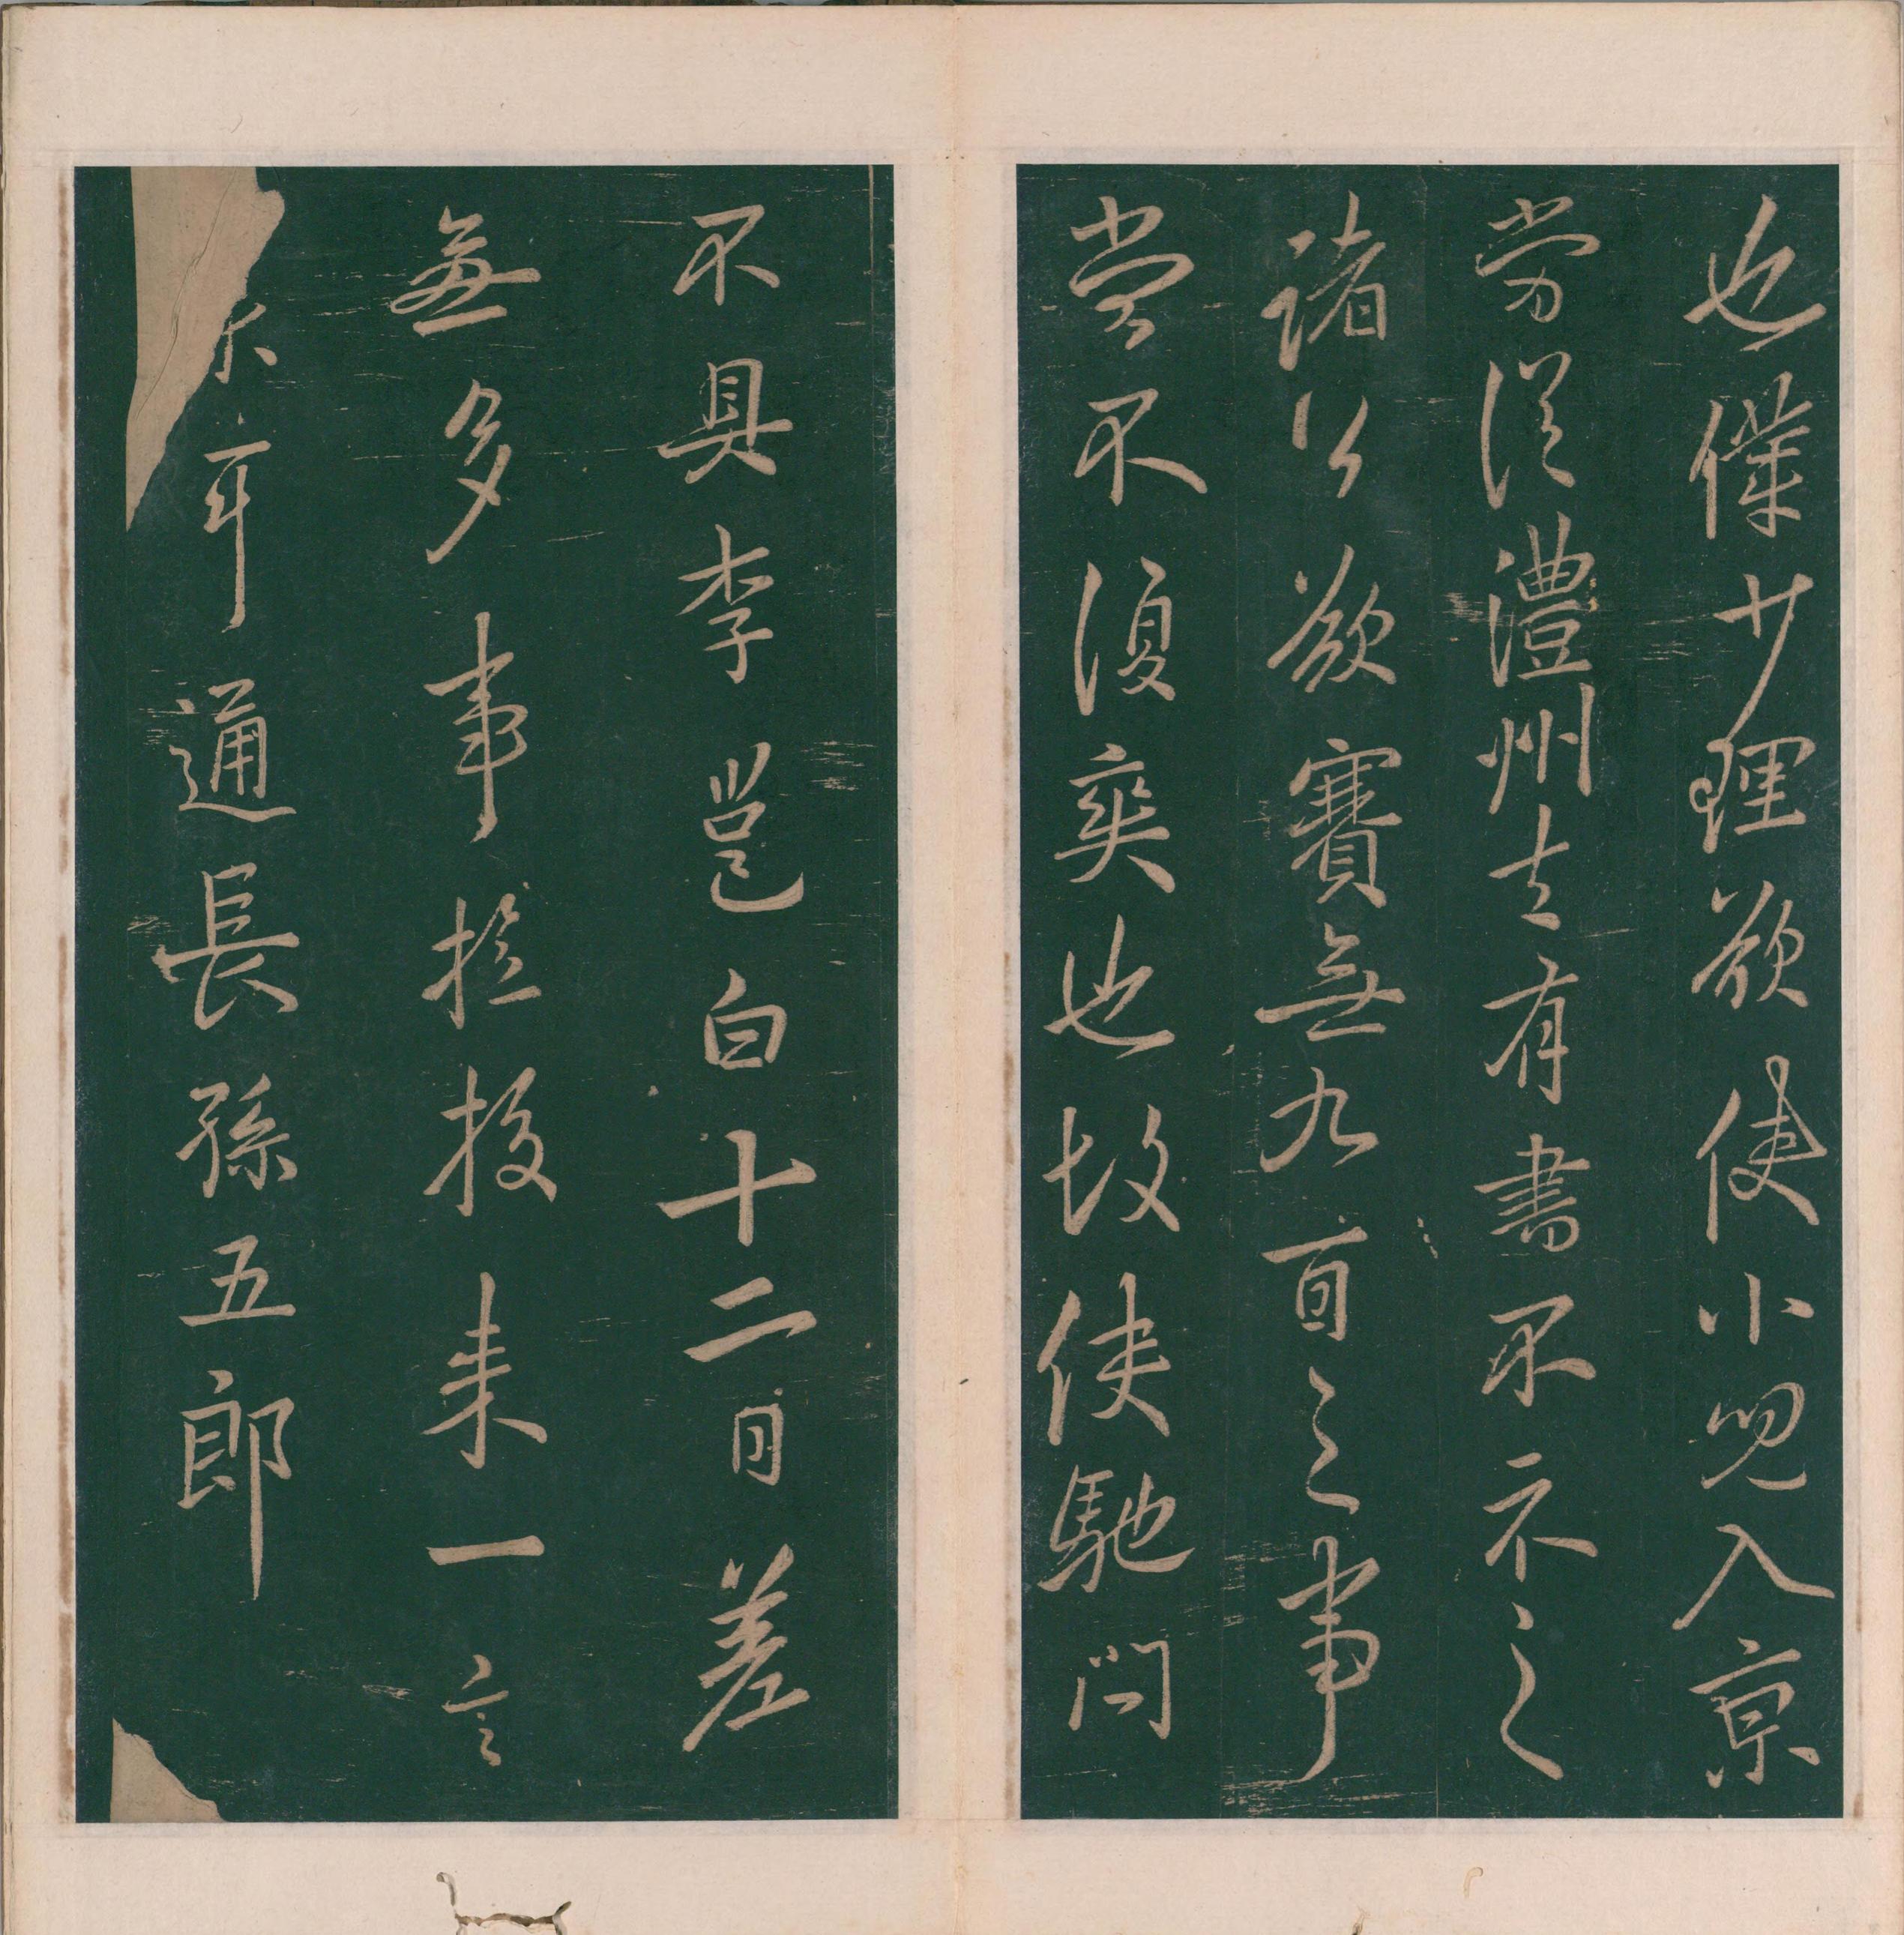 也僕少理欲使小兒入京
勞從澧州去有書不示之
諸公欲賽無九百之事
當不復爽也故使馳問
不具李邕白十二日差
無多事撿投來一言
耳通長孫五郎